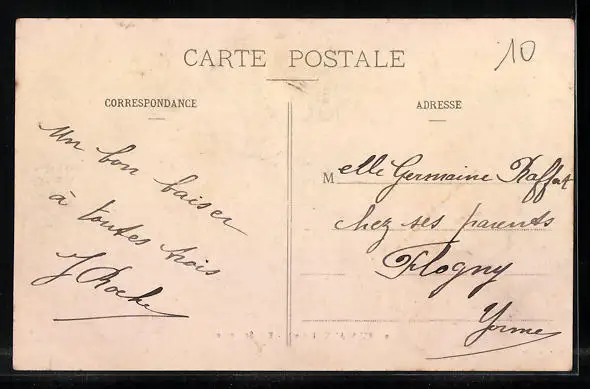 CARTE POSTALE
10
CORRESPONDANCE
Un bon baiser
à toutes trois
J Roche
ADRESSE
Melle Germaine Raffat
chez ses parents
Flogny
Yonne